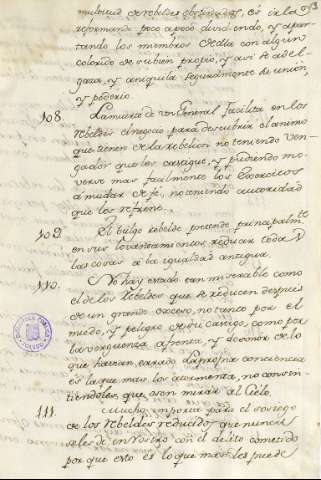 multitud de rebeldes obstinados, es irla
reformando poco a poco dividiendo, y apar-
tando los miembros de ella con algun
colorido de su bien propio, y asi se adel-
gaza, y aniquila seguramente su union,
y poderio.
108. La muerte de un General facilita en los
rebeldes el negocio para descubrir el animo
que tienen de la rebelion no teniendo ven-
gador que los castigue, y pudiendo mo-
verse mas facilmente los Exercitos
a mudar de fé, no teniendo autoridad
que los refrene.
109. El vulgo rebelde pretende principalmte
en sus levantamientos reducir todas
las cosas a la igualdad antigua.
110. No hay estado tan miserable como
el de los Rebeldes que se reducen despues
de un grande exceso, no tanto por el
miedo, y peligro de su castigo, como por
la verguenza afrenta, y desonor de lo
que havian errado la propia conciencia
es la que mas los atormenta, no consin-
tiendoles que osen mirar al Cielo.
111. Mucho importa para el sosiego
de los Rebeldes reducidos, que nunca
se les dé en rostro con el delito cometido
por que esto es lo que mas les puede